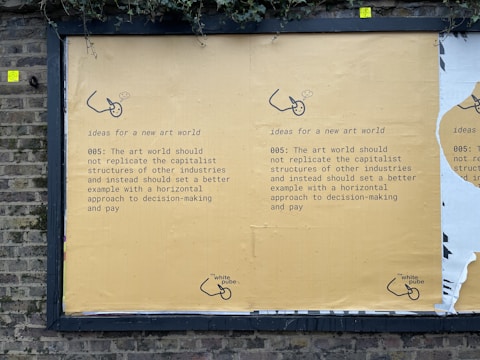 ideas for a new art world
005: The art world should
not replicate the capitalist
structures of other industries
and instead should set a better
example with a horizontal
approach to decision-making
and pay
the white
pube
ideas for a new art world
005: The art world should
not replicate the capitalist
structures of other industries
and instead should set a better
example with a horizontal
approach to decision-making
and pay
the white
pube
ideas
005: T
not re
struct